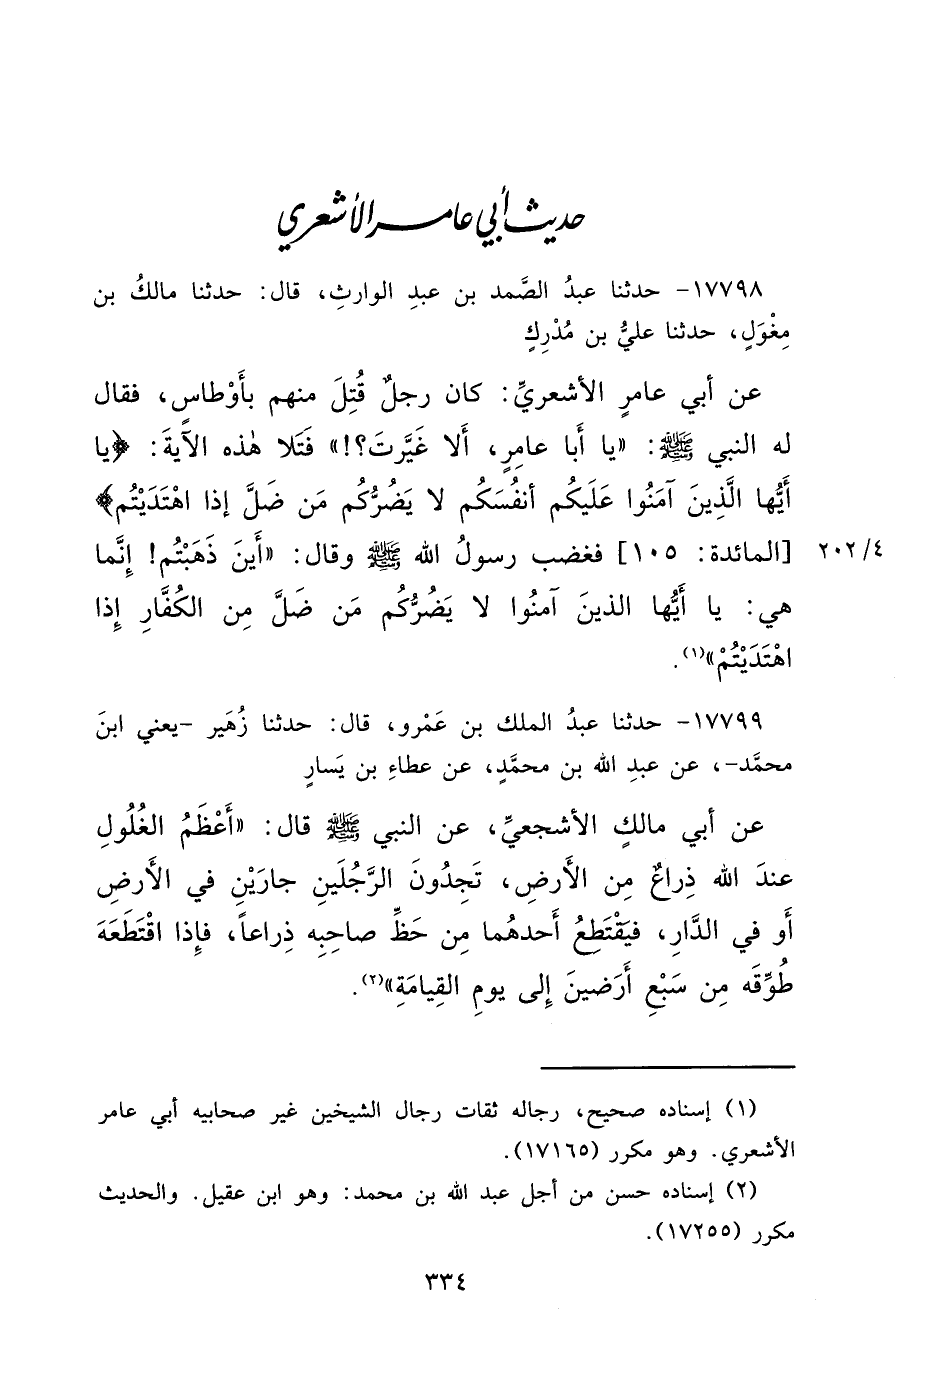 حديث أبي عامر الأشعري
١٧٧٩٨- حدثنا عبدُ الصَّمد بن عبدِ الوارثِ، قال: حدثنا مالكُ بن
مِغْوَلٍ، حدثنا عليُّ بن مُدْرِكٍ
عن أبي عامرٍ الأشعريِّ: كان رجلٌ قُتِلَ منهم بأَوْطاسٍ، فقال
له النبي ﷺ: «يا أَبا عامِرٍ، أَلا غَيَّرتَ؟!» فَتَلا هٰذه الآيةَ: ﴿يا
أَيُّها الَّذِينَ آمَنُوا عَلَيكُم أنفُسَكُم لا يَضُرُّكُم مَن ضَلَّ إذا اهْتَدَيْتُم﴾
[المائدة: ١٠٥] فغضب رسولُ الله ﷺ وقال: «أَينَ ذَهَبْتُم! إِنَّما
٢٠٢/٤
هي: يا أَيُّها الذينَ آمنُوا لا يَضُرُّكُم مَن ضَلَّ مِن الكُفَّارِ إِذا
اهْتَدَيْتُمْ»(١).
١٧٧٩٩- حدثنا عبدُ الملك بن عَمْرو، قال: حدثنا زُهَير -يعني ابنَ
محمَّد-، عن عبدِ الله بن محمَّدٍ، عن عطاءِ بن يَسارٍ
عن أبي مالكٍ الأشجعيِّ، عن النبي ﷺ قال: «أَعْظَمُ الغُلُولِ
عندَ الله ذِراعٌ مِن الأَرضِ، تَجِدُونَ الرَّجُلَينِ جارَيْنِ في الأَرضِ
أَو في الدَّارِ، فيَقْتَطِعُ أَحدهُما مِن حَظِّ صاحِبِه ذِراعاً، فإِذا اقْتَطَعَهَ
طُوِّقَه مِن سَبْعِ أَرَضينَ إِلى يومِ القِيامَةِ»(٢).
(١) إسناده صحيح، رجاله ثقات رجال الشيخين غير صحابيه أبي عامر
الأشعري. وهو مكرر (١٧١٦٥).
(٢) إسناده حسن من أجل عبد الله بن محمد: وهو ابن عقيل. والحديث
مكرر (١٧٢٥٥).
٣٣٤